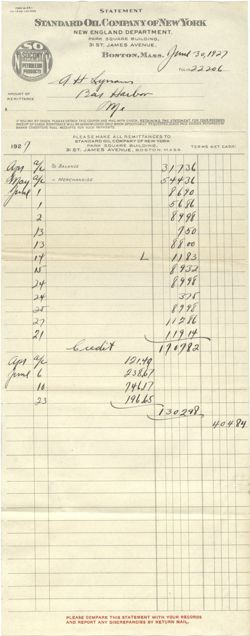 STATEMENT
STANDARD OIL COMPANY OF NEW YORK
NEW ENGLAND DEPARTMENT,
PARK SQUARE BUILDING,
31 ST. JAMES AVENUE,
BOSTON, MASS. June 30, 1927
SO
SOCONY
PETROLEUM
PRODUCTS
22206
A H Lynam
AMOUNT OF
REMITTANCE
Bar Harbor
Me
PLEASE MAKE ALL REMITTANCES TO
STANDARD OIL COMPANY OF NEW YORK
PARK SQUARE BUILDING,
31 ST. JAMES AVENUE, BOSTON, MASS.
TERMS NET CASH.
1927
Apr a/c To BALANCE 317 36
May a/c " MERCHANDISE 544 26
June 1 86 70
1 56 86
2 89 98
13 7 50
13 88 00
14 L 11 83
15 89 32
24 89 98
24 3 75
25 89 98
27 112 86
21 119 14
Credit 1707 82
Apr a/c 121 40
June 6 238 67
18 746 17
23 196 65
1302 98
404 84
PLEASE COMPARE THIS STATEMENT WITH YOUR RECORDS
AND REPORT ANY DISCREPANCIES BY RETURN MAIL.